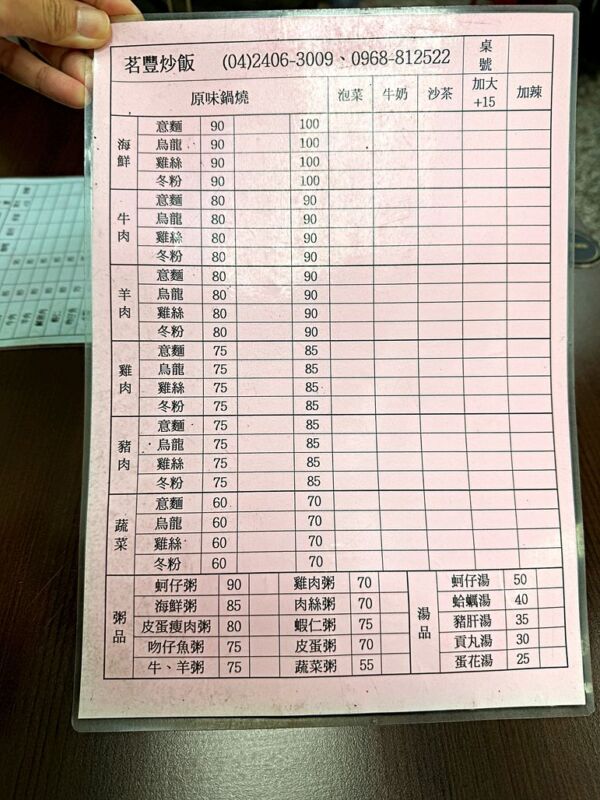 茗豐炒飯 (04)2406-3009、0968-812522 桌號
原味鍋燒 泡菜 牛奶 沙茶 加大+15 加辣
海鮮
意麵 90 100
烏龍 90 100
雞絲 90 100
冬粉 90 100
牛肉
意麵 80 90
烏龍 80 90
雞絲 80 90
冬粉 80 90
羊肉
意麵 80 90
烏龍 80 90
雞絲 80 90
冬粉 80 90
雞肉
意麵 75 85
烏龍 75 85
雞絲 75 85
冬粉 75 85
豬肉
意麵 75 85
烏龍 75 85
雞絲 75 85
冬粉 75 85
蔬菜
意麵 60 70
烏龍 60 70
雞絲 60 70
冬粉 60 70
粥品
蚵仔粥 90 雞肉粥 70
海鮮粥 85 肉絲粥 70
皮蛋瘦肉粥 80 蝦仁粥 75
吻仔魚粥 75 皮蛋粥 70
牛、羊粥 75 蔬菜粥 55
湯品
蚵仔湯 50
蛤蠣湯 40
豬肝湯 35
貢丸湯 30
蛋花湯 25